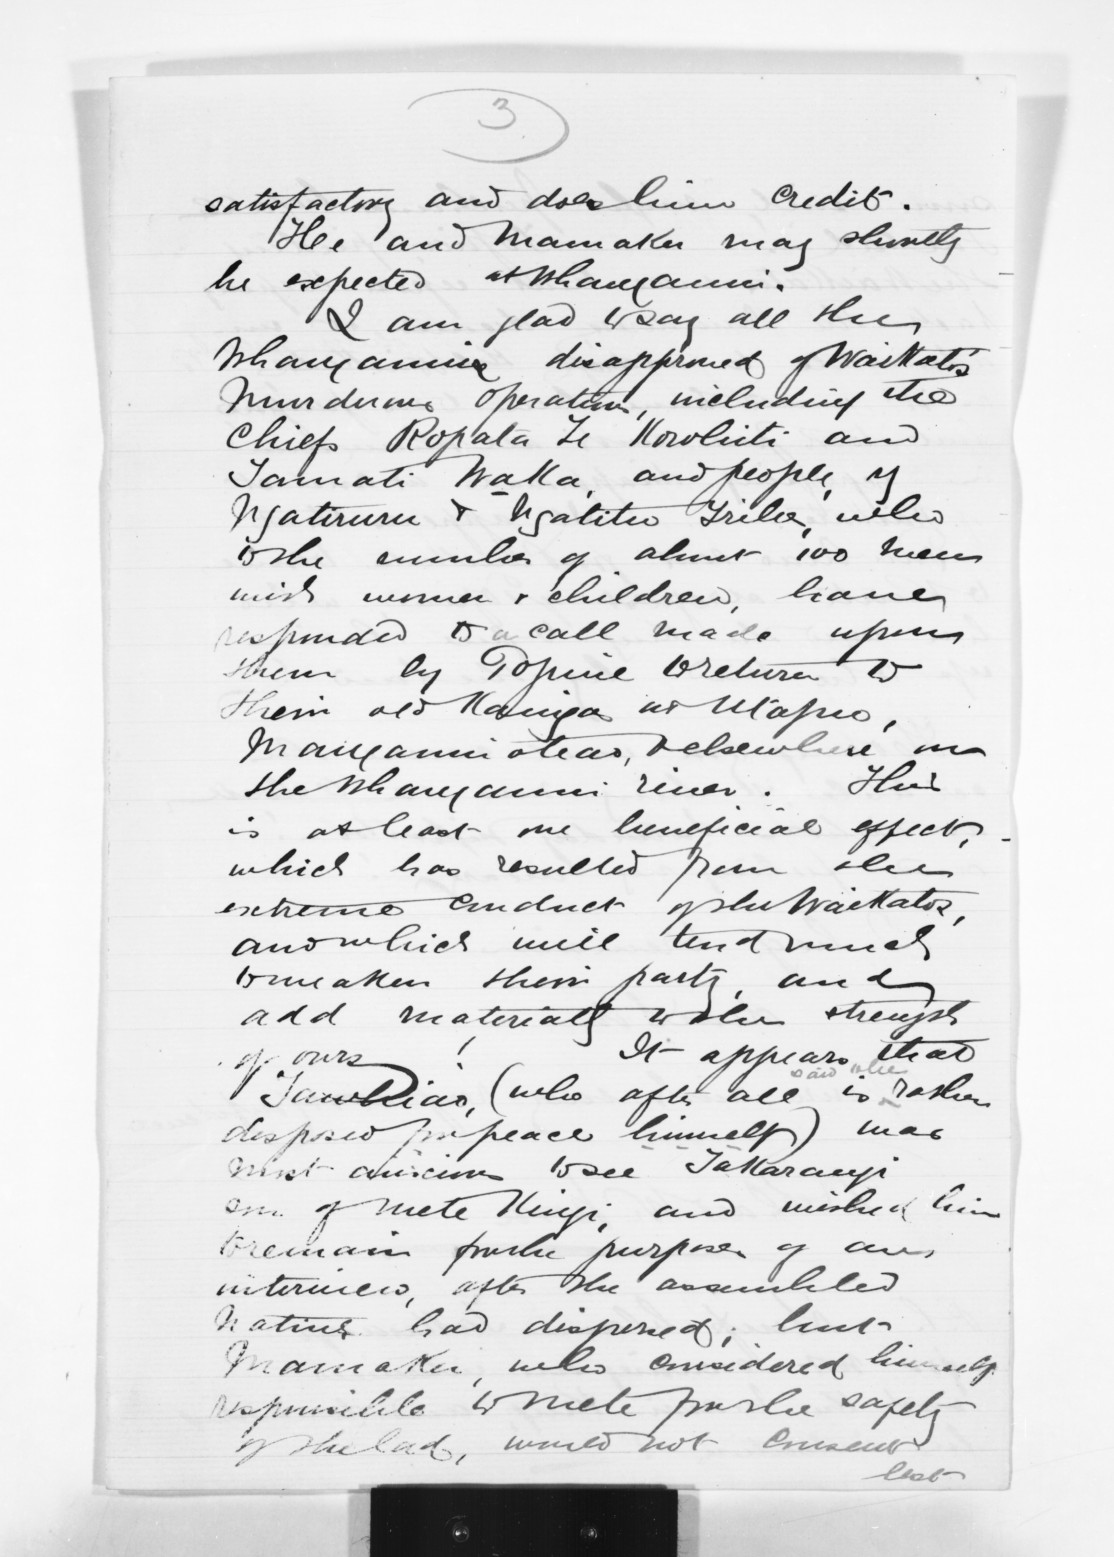 3
satisfactory and does him credit.
He and Mamaku may shortly
be expected at Whanganui.
I am glad to say all the
Whanganuis disapproved of Waikato's
Murderous operations, including the
Chiefs Ropata Te Korohiti and
Tamati Waka, and people, of
Ngatiruru & Ngatitu Tribes, who
to the number of about 100 men
with women & children, have
responded to a call made upon
them by Topine to return to
their old Kainga at Utapu,
Manganuioteao, & elsewhere on
the Whanganui river. This
is at least one beneficial effect,
which has resulted from the
extreme conduct of the Waikatos,
and which will tend much
to weaken their party, and
add materially to the strength
of ours! It appears that
said he
Tawhiao, (who after all is rather
disposed for peace himself) was
most anxious to see Takarangi
son of Mete Kingi, and wished him
to remain for the purpose of an
interview, after the assembled
Natives had dispersed; but
Mamaku, who considered himself
responsible to Mete for the safety
of the lad, would not consent
lest